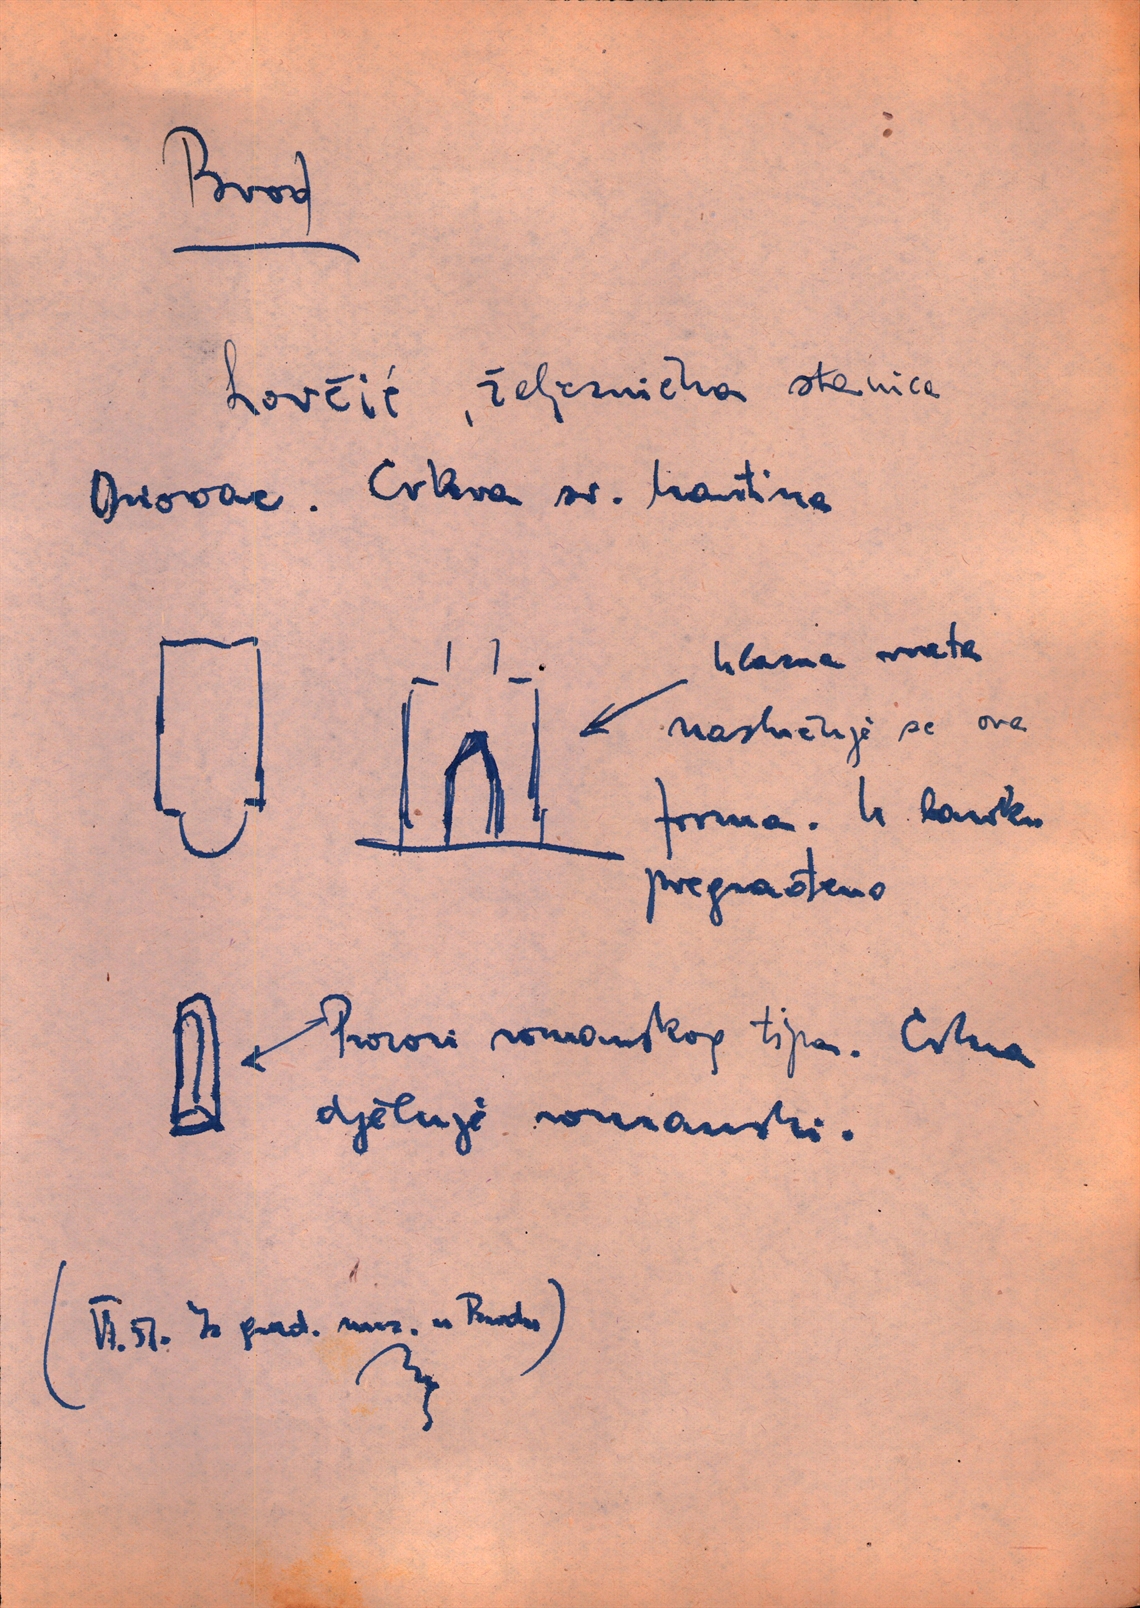 Brod
Lovčić, željeznička stanica
Oriovac. Crkva sv. Martina
Ulazna vrata
naslućuje se ova
forma. U baroku
pregrađeno
Prozori romanskog tipa. Crkva
djeluje romanski.
(VI. 57. Iz grad. muz. u Brodu)